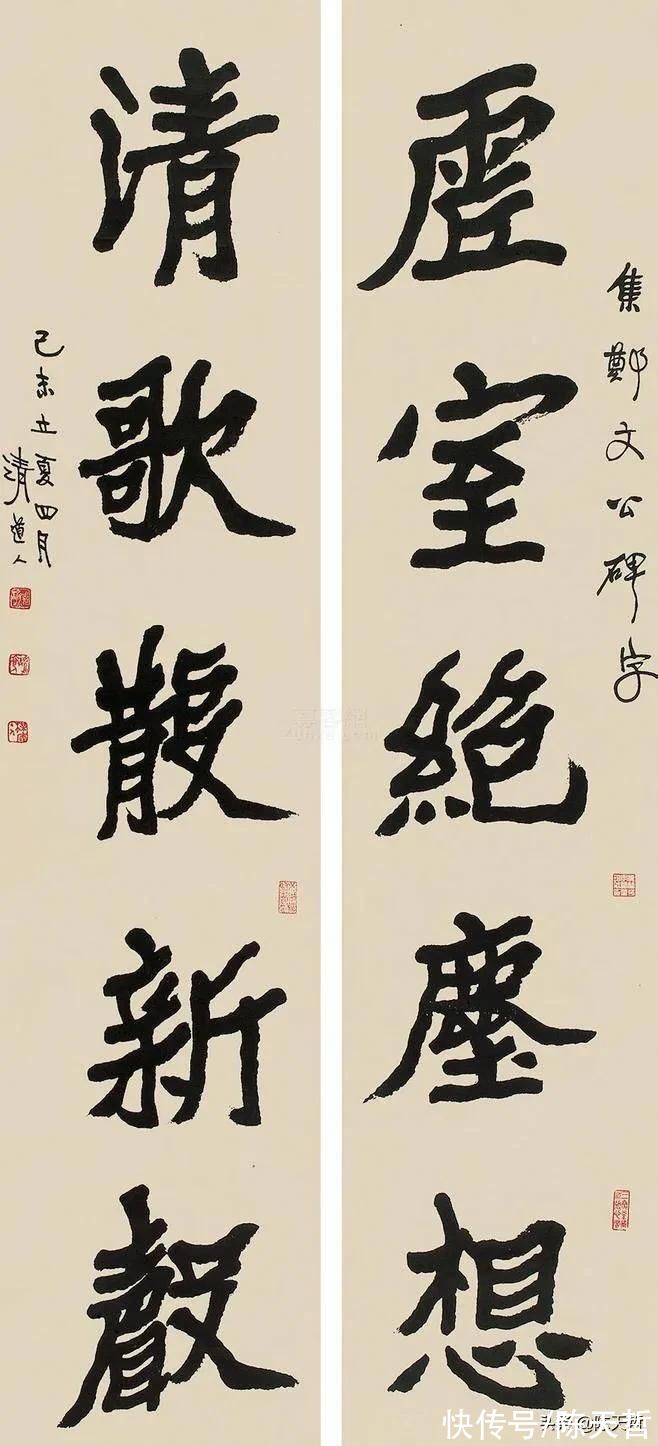 集鄭文公碑字
虛室絕塵想
清歌散新聲
己未立夏四月
清道人
快传号/陈天哲
头条@陈天哲